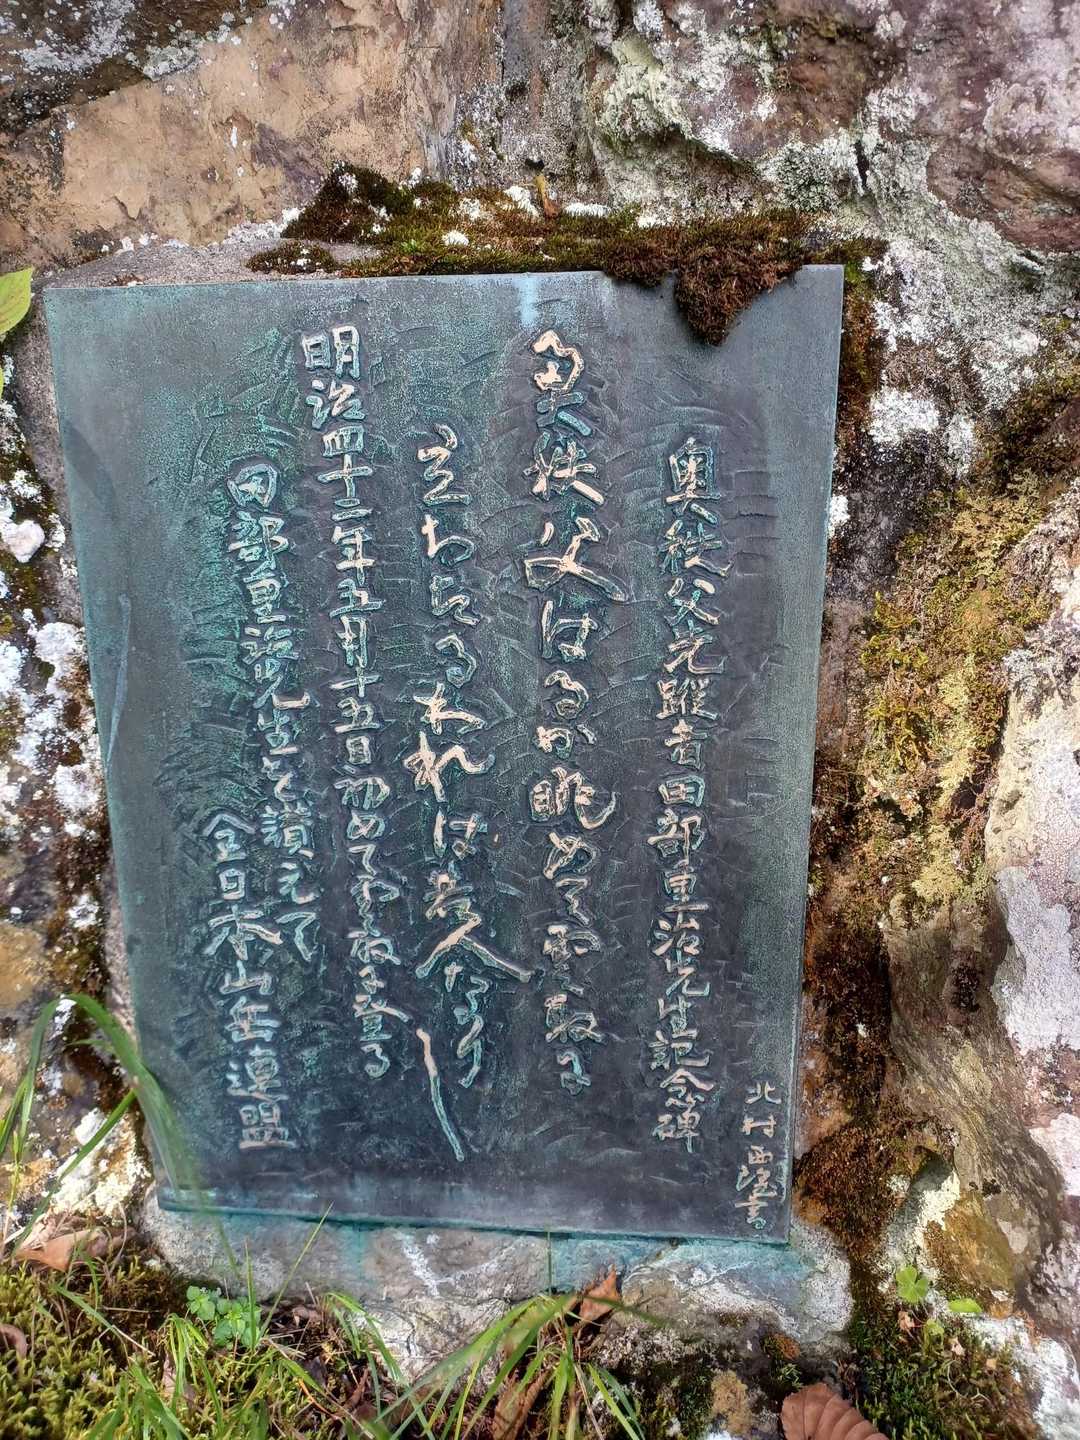 北村西望書
奥秩父先蹤者田部重治先生記念碑
奥秩父はるか眺めて雲取に
立ちたるわれは老人なり
明治四十二年五月十五日初めて雲取に登る
田部重治先生を讃えて
全日本山岳連盟